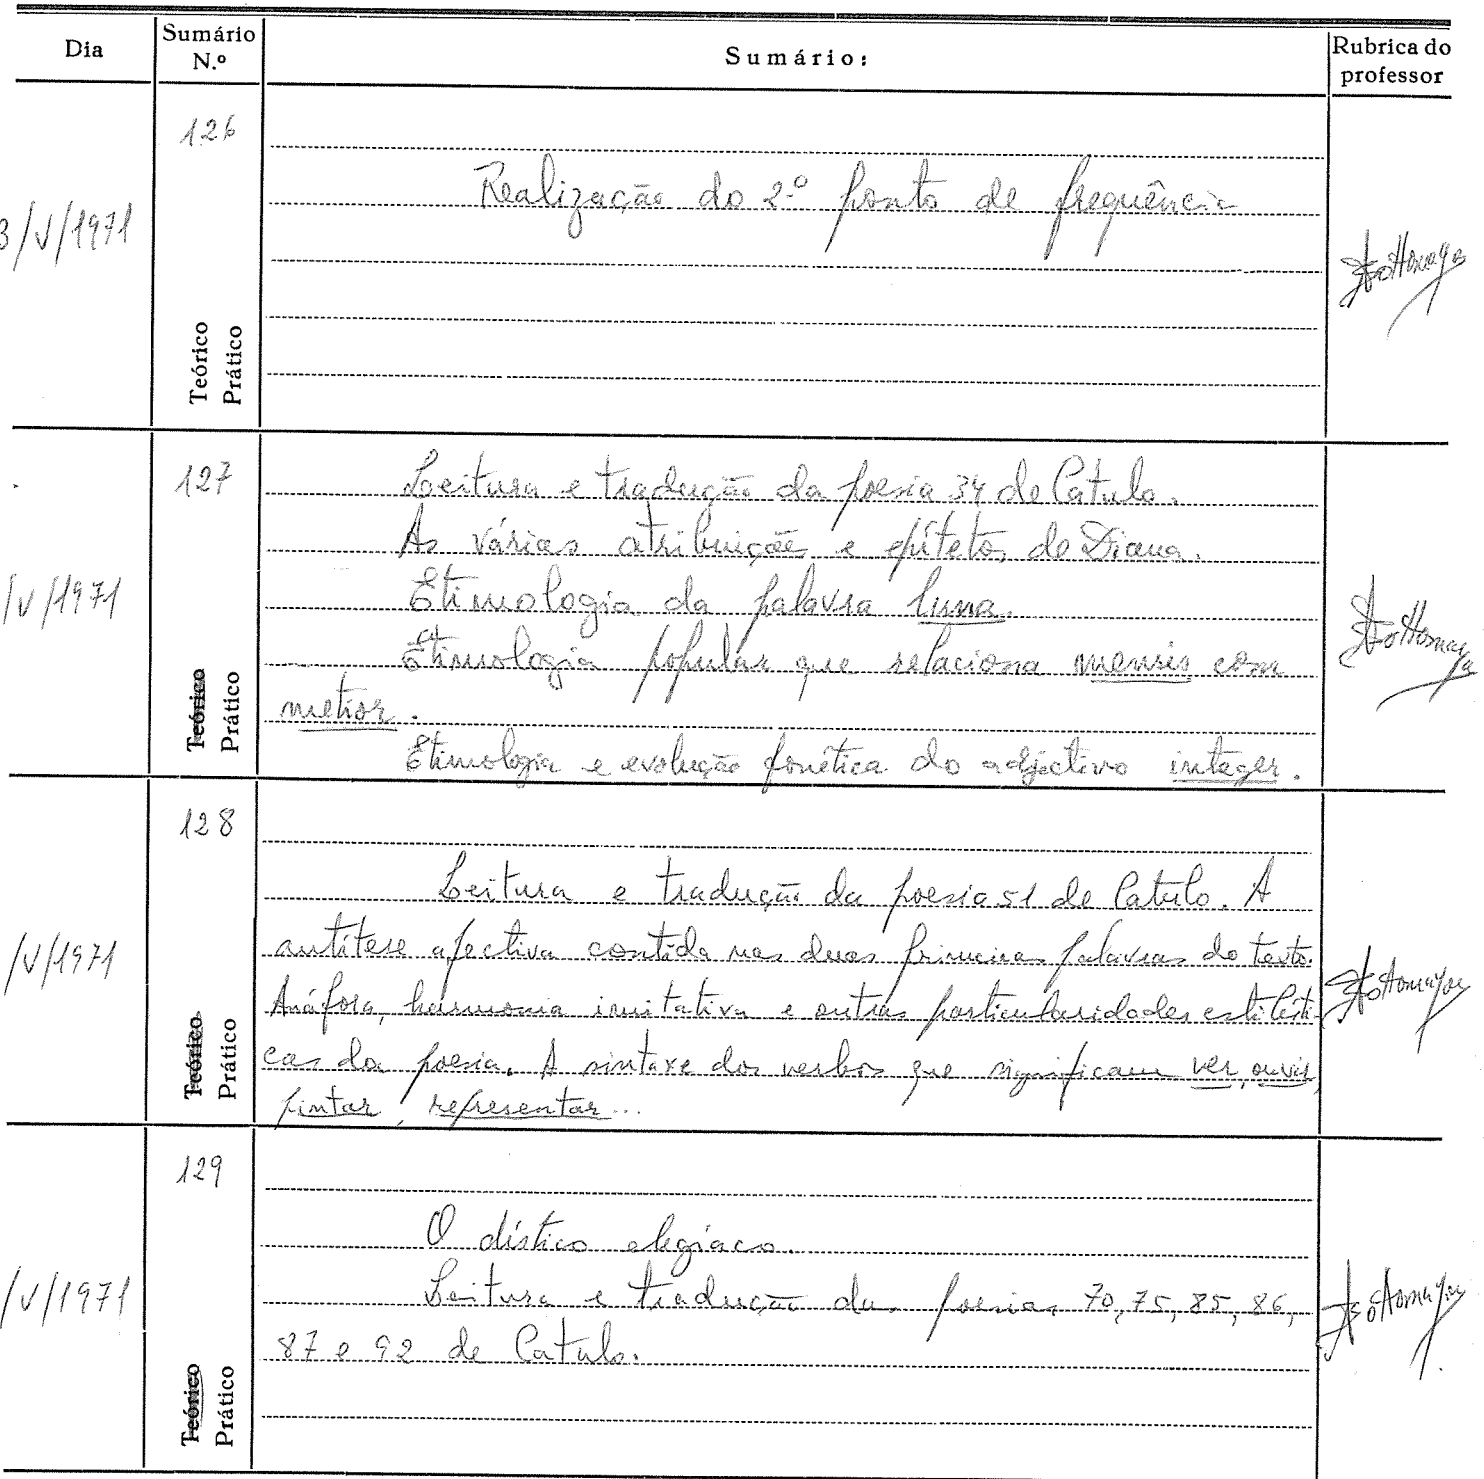 Dia
Sumário N.º
Sumário:
Rubrica do professor
3/V/1971
126
Teórico
Prático
Realização do 2.º ponto de frequência
/V/1971
127
Teórico
Prático
Leitura e tradução da poesia 34 de Catulo.
As várias atribuições e epítetos de Diana.
Etimologia da palavra luna.
Etimologia popular que relaciona mensis com
metior.
Etimologia e evolução fonética do adjectivo integer.
/V/1971
128
Teórico
Prático
Leitura e tradução da poesia 51 de Catulo. A
antítese afectiva contida nas duas primeiras palavras do texto.
Anáfora, harmonia imitativa e outras particularidades estilísti-
cas da poesia. A sintaxe dos verbos que significam ver, ouvir,
pintar, representar...
/V/1971
129
Teórico
Prático
O dístico elegíaco.
Leitura e tradução das poesias 70, 75, 85, 86,
87 e 92 de Catulo.